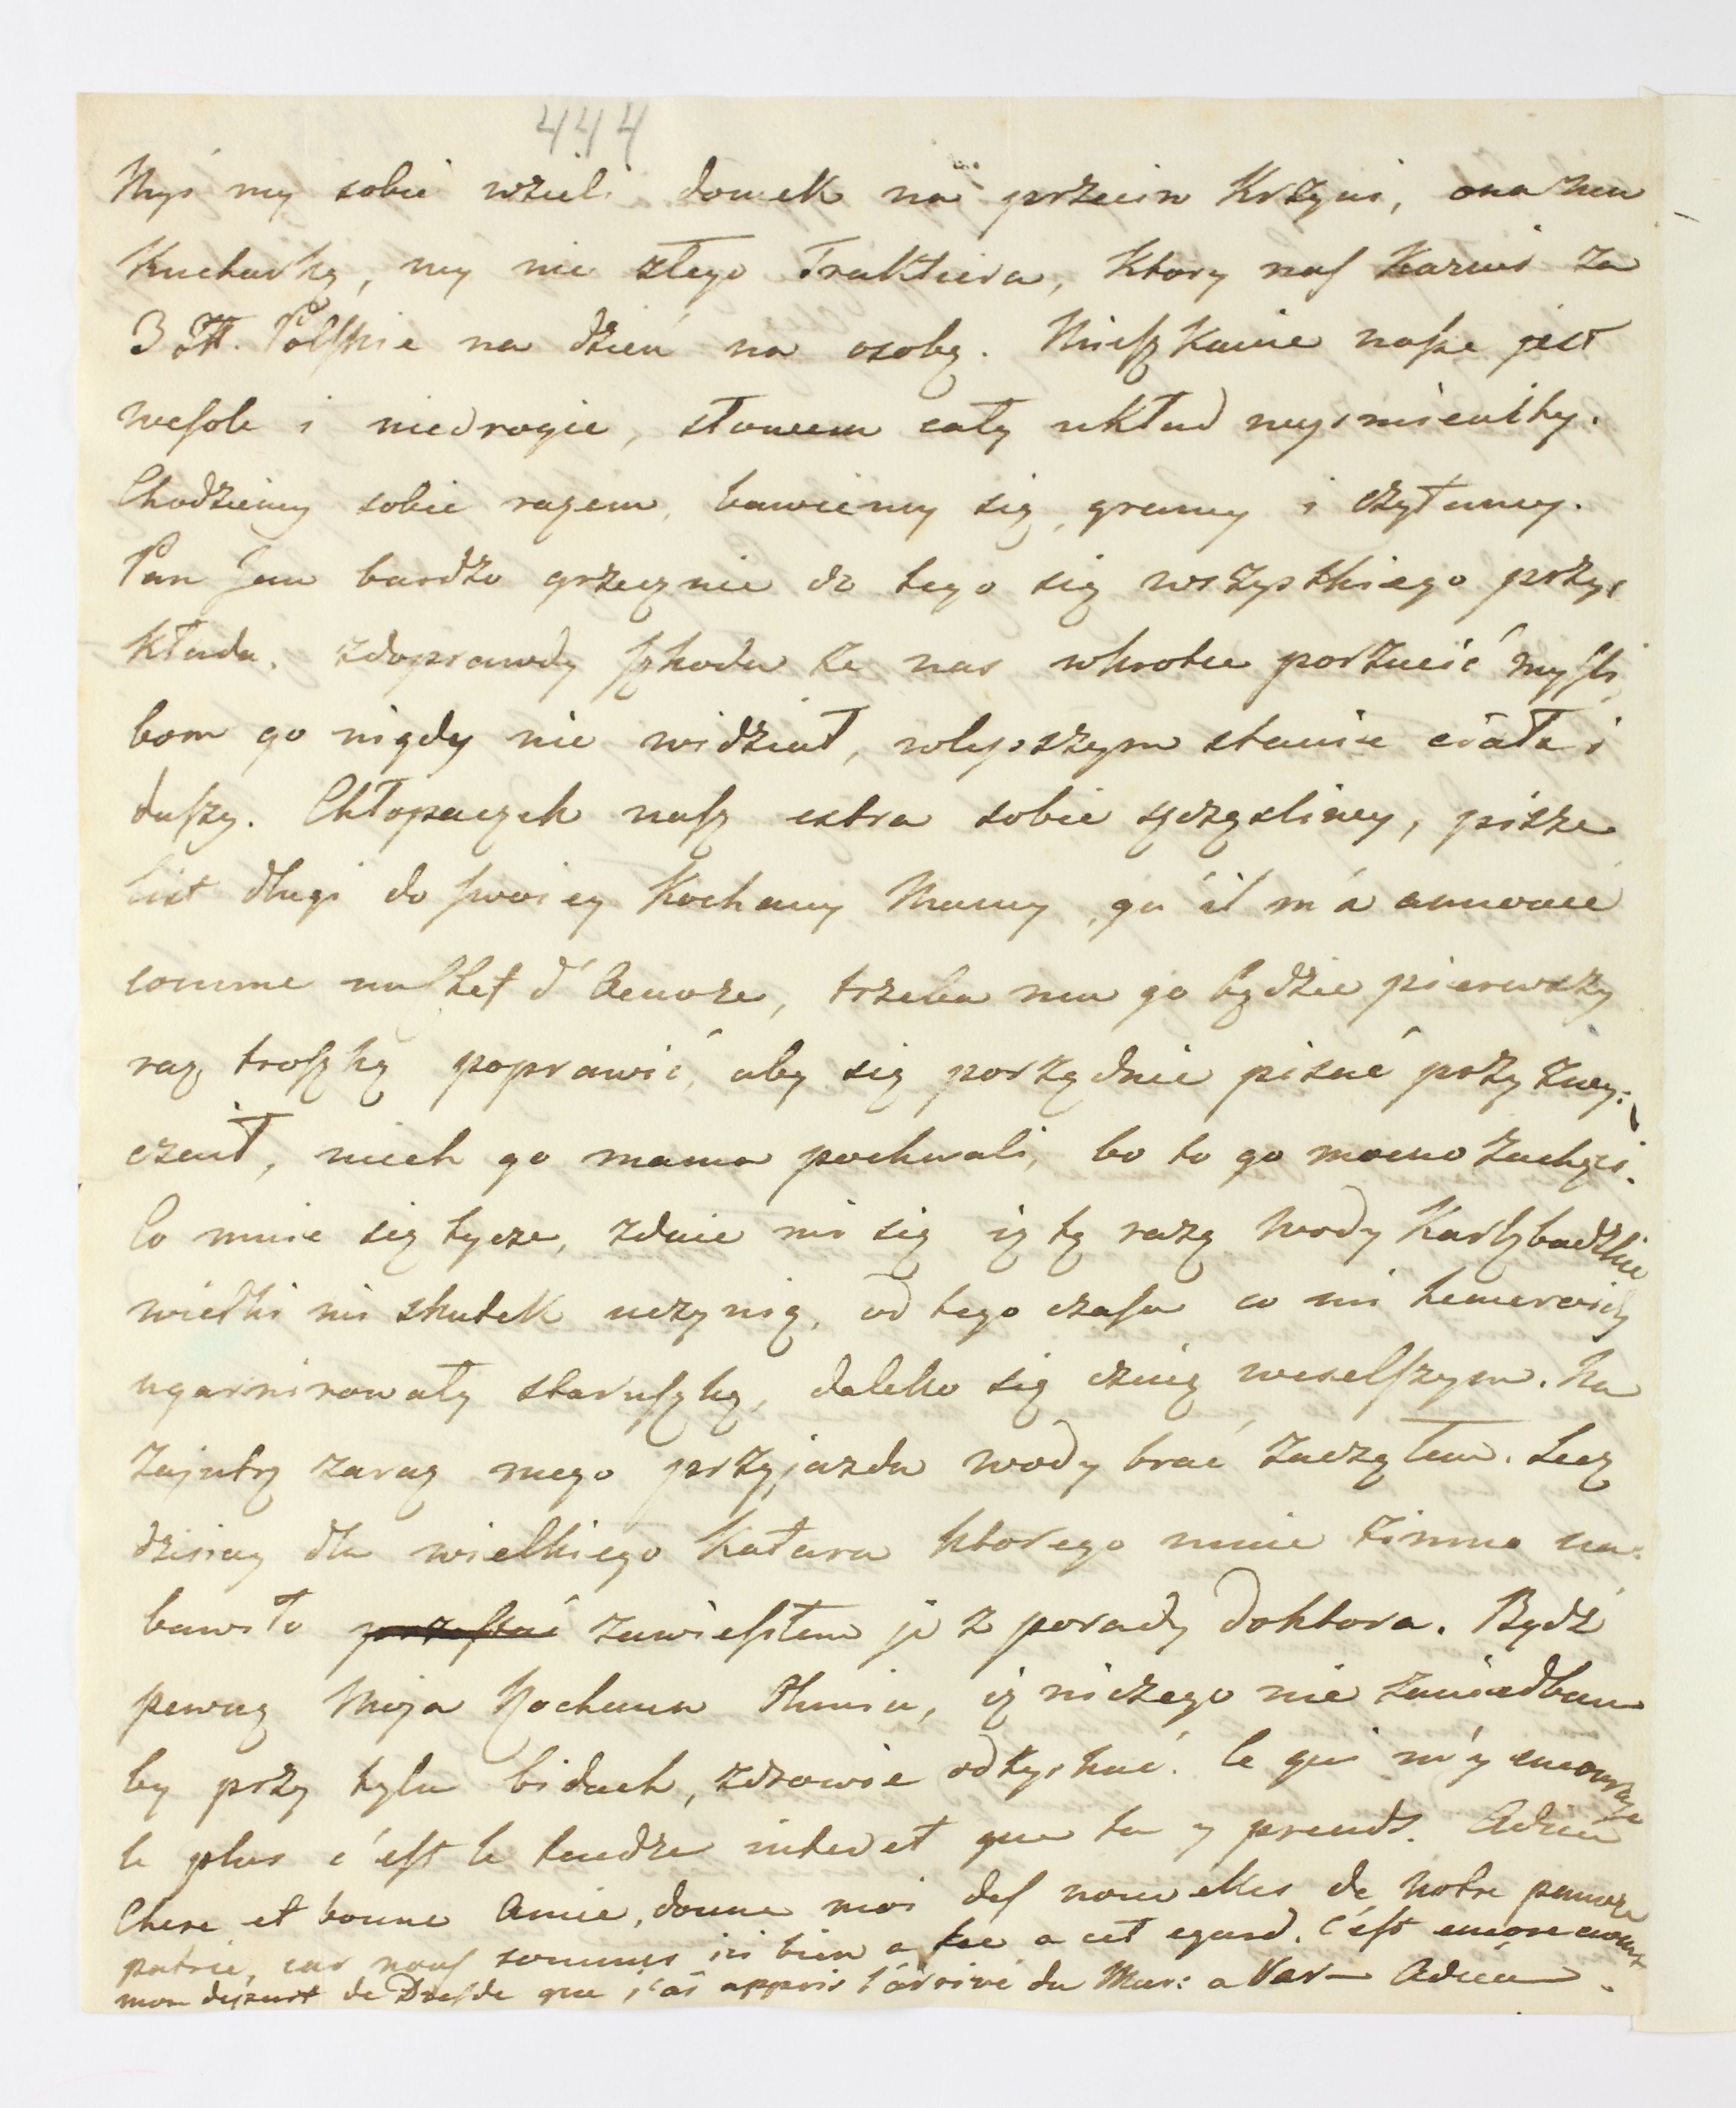 444
Myś my sobie wzieli domek na przeciw Krzysi, ona ma
Kucharkę, my nie złego Traktiera, Ktory nas Karmi za
3 Zł. Polskie na dzień na osobę. Mieszkanie nasze jest
wesołe i niedrogie, słowem cały układ wysmienity.
Chodziemy sobie razem, bawiemy się, gramy i czytamy.
Pan Jan bardzo grzecznie do tego się wszystkiego przy:
kłada, zdoprawdy szkoda że nas wkrotce porzucić mysli,
bom go nigdy nie widział, wlepszym stanie ciała i
duszy. Chłopaczek nasz extra sobie szczęsliwy, pisze
list długi do swoiey Kochaney Mamy, qu'il m'a
comme trzeba mu go będzie pierwszy
raz troszkę poprawić, aby się porządnie pisać przyzwy:
czaił, niech go mama pochwali, bo to go mocno zachęci.
Co mnie się tycze, zdaie mi się iż tę razę wody Karlzbadzkie
wielki mi skutek uczynią, od tego czasu co mi hemeroidy
ugarnirowały staruszkę, daleko się czuię weselszym. Na
zajutrz zaraz mego przyjazdu wody brać zaczęłem. Lecz
dzisiay dla wielkiego Kataru ktorego mnie zimno na:
bawiło przestać zawiesiłem je z porady doktora. Bądź
pewną Moja Kochana iż niczego nie zaniedbam
by przy tylu bidach, zdrowie odzyskać. Ce qui m'y encourage
le plus c'est le tendre interet que tu y prends. Adieu
Chere et bonne Amie, donne moi des nouvelles de notre pauvre
patrie, car nous sommes ici bien a sec a cet egard. C'est encore avant
mon depart de Dresde que j'ai appris l'arrivé du Mar: a Var— Adieu.